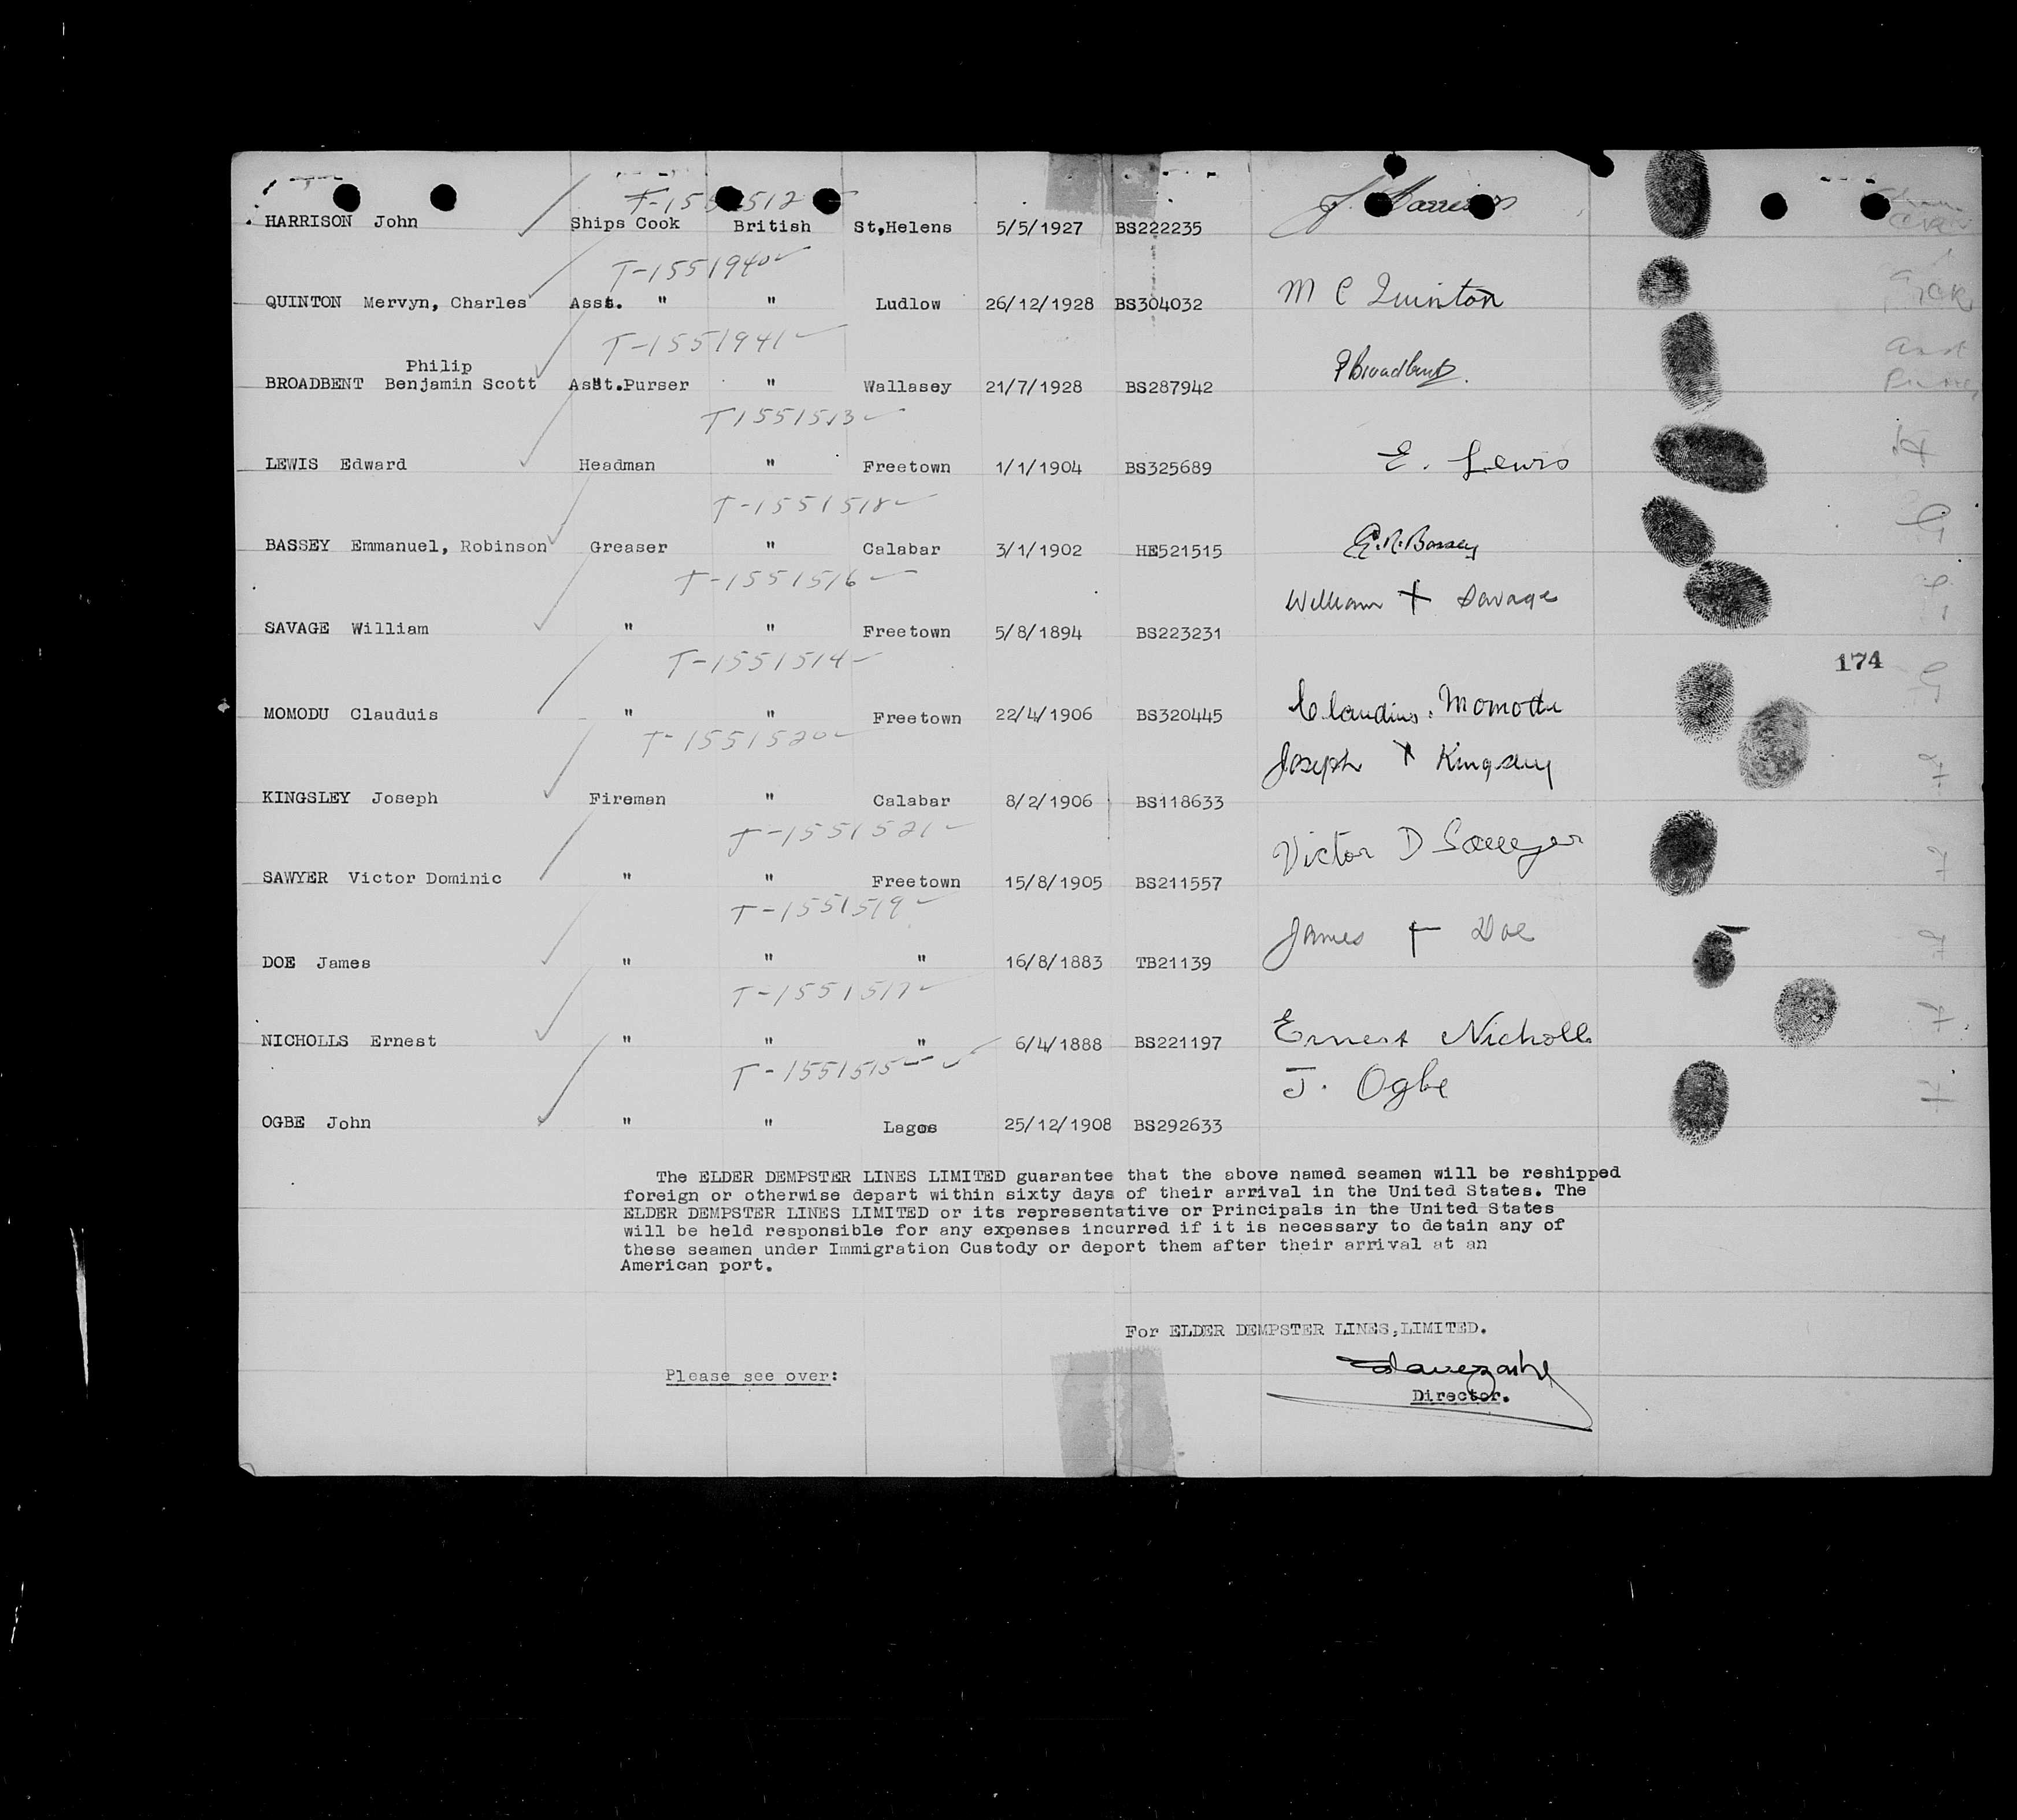 HARRISON John Ships Cook British St,Helens 5/5/1927 BS222235
T-1551940
QUINTON Mervyn, Charles Asst. " " Ludlow 26/12/1928 BS304032 M C Quinton
T-1551941
Philip
BROADBENT Benjamin Scott Asst.Purser " Wallasey 21/7/1928 BS287942 P Broadbent
T1551513
LEWIS Edward Headman " Freetown 1/1/1904 BS325689 E. Lewis
T-1551518
BASSEY Emmanuel, Robinson Greaser " Calabar 3/1/1902 HE521515 E.R.Bassey
T-1551516 William + Savage
SAVAGE William " " Freetown 5/8/1894 BS223231
T-1551514 174
MOMODU Clauduis " " Freetown 22/4/1906 BS320445 Claudius. Momodu
T-1551520 Joseph X Kingsley
KINGSLEY Joseph Fireman " Calabar 8/2/1906 BS118633
T-1551521 Victor D Sawyer
SAWYER Victor Dominic " " Freetown 15/8/1905 BS211557
T-1551519 James + Doe
DOE James " " " 16/8/1883 TB21139
T-1551517
NICHOLLS Ernest " " " 6/4/1888 BS221197 Ernest Nicholls
T-1551515 J. Ogbe
OGBE John " " Lagos 25/12/1908 BS292633
The ELDER DEMPSTER LINES LIMITED guarantee that the above named seamen will be reshipped
foreign or otherwise depart within sixty days of their arrival in the United States. The
ELDER DEMPSTER LINES LIMITED or its representative or Principals in the United States
will be held responsible for any expenses incurred if it is necessary to detain any of
these seamen under Immigration Custody or deport them after their arrival at an
American port.
For ELDER DEMPSTER LINES,LIMITED.
Please see over:
Director.